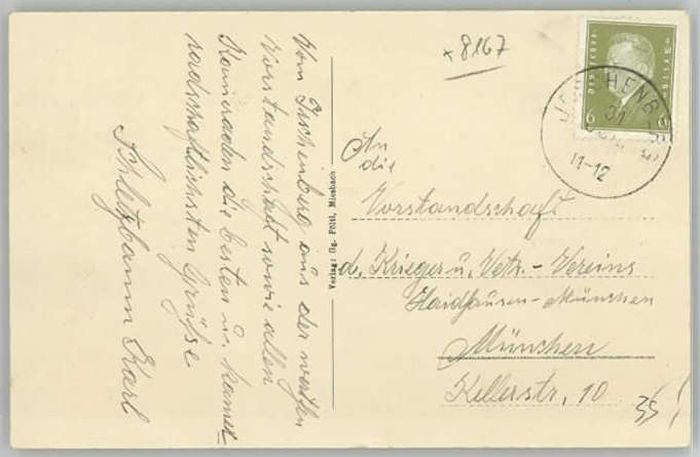 Vom Irschenberg aus der werten
Vorstandschaft sowie allen
Kameraden die besten u. kamer-
radschaftlichsten Grüße
Schletzbaum Karl
Verlag: Gg. Pöltl, Miesbach
× 8167
6 6
11-12
An
die
Vorstandschaft
d. Krieger u. Vetr.- Vereins
Haidhausen-München
München
Kellerstr. 10
35